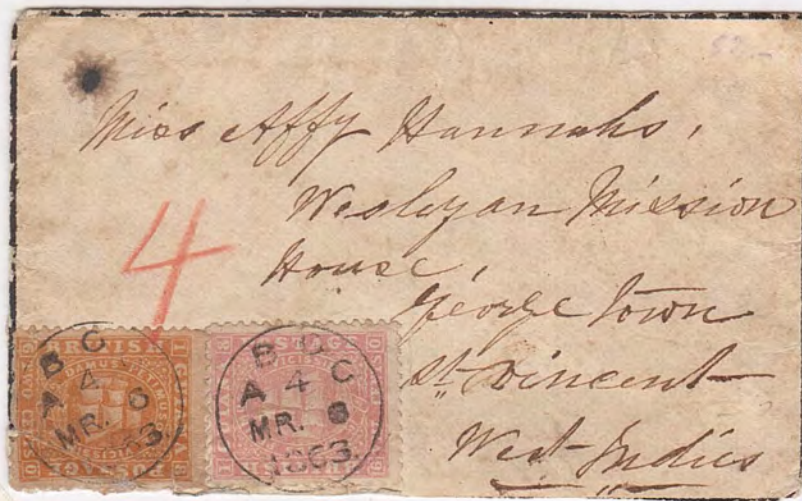 Miss Affy Hannahs,
Wesleyan Mission
House,
George Town
St. Vincent
West Indies
4
BRITISH
POSTAGE
B C
A 4
MR. 8
1863
B C
A 4 C
MR. 8
1863